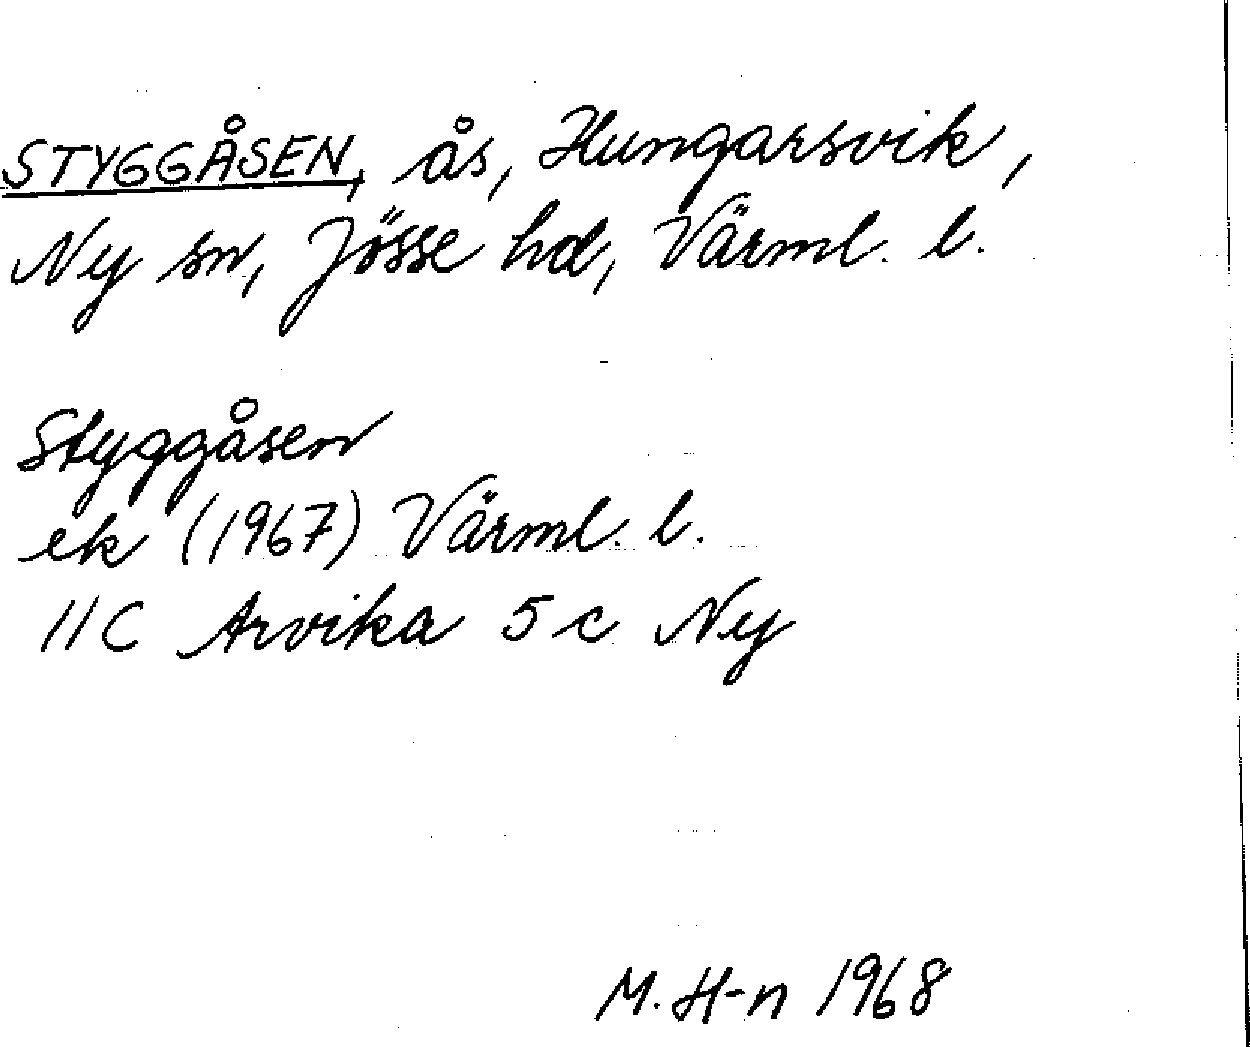 STYGGÅSEN, ås, Hungarsvik,
Ny sn, Jösse hd, Värml. l.
Styggåsen
ek (1967) Värml. l.
11C Arvika 5c Ny
M. H-n 1968